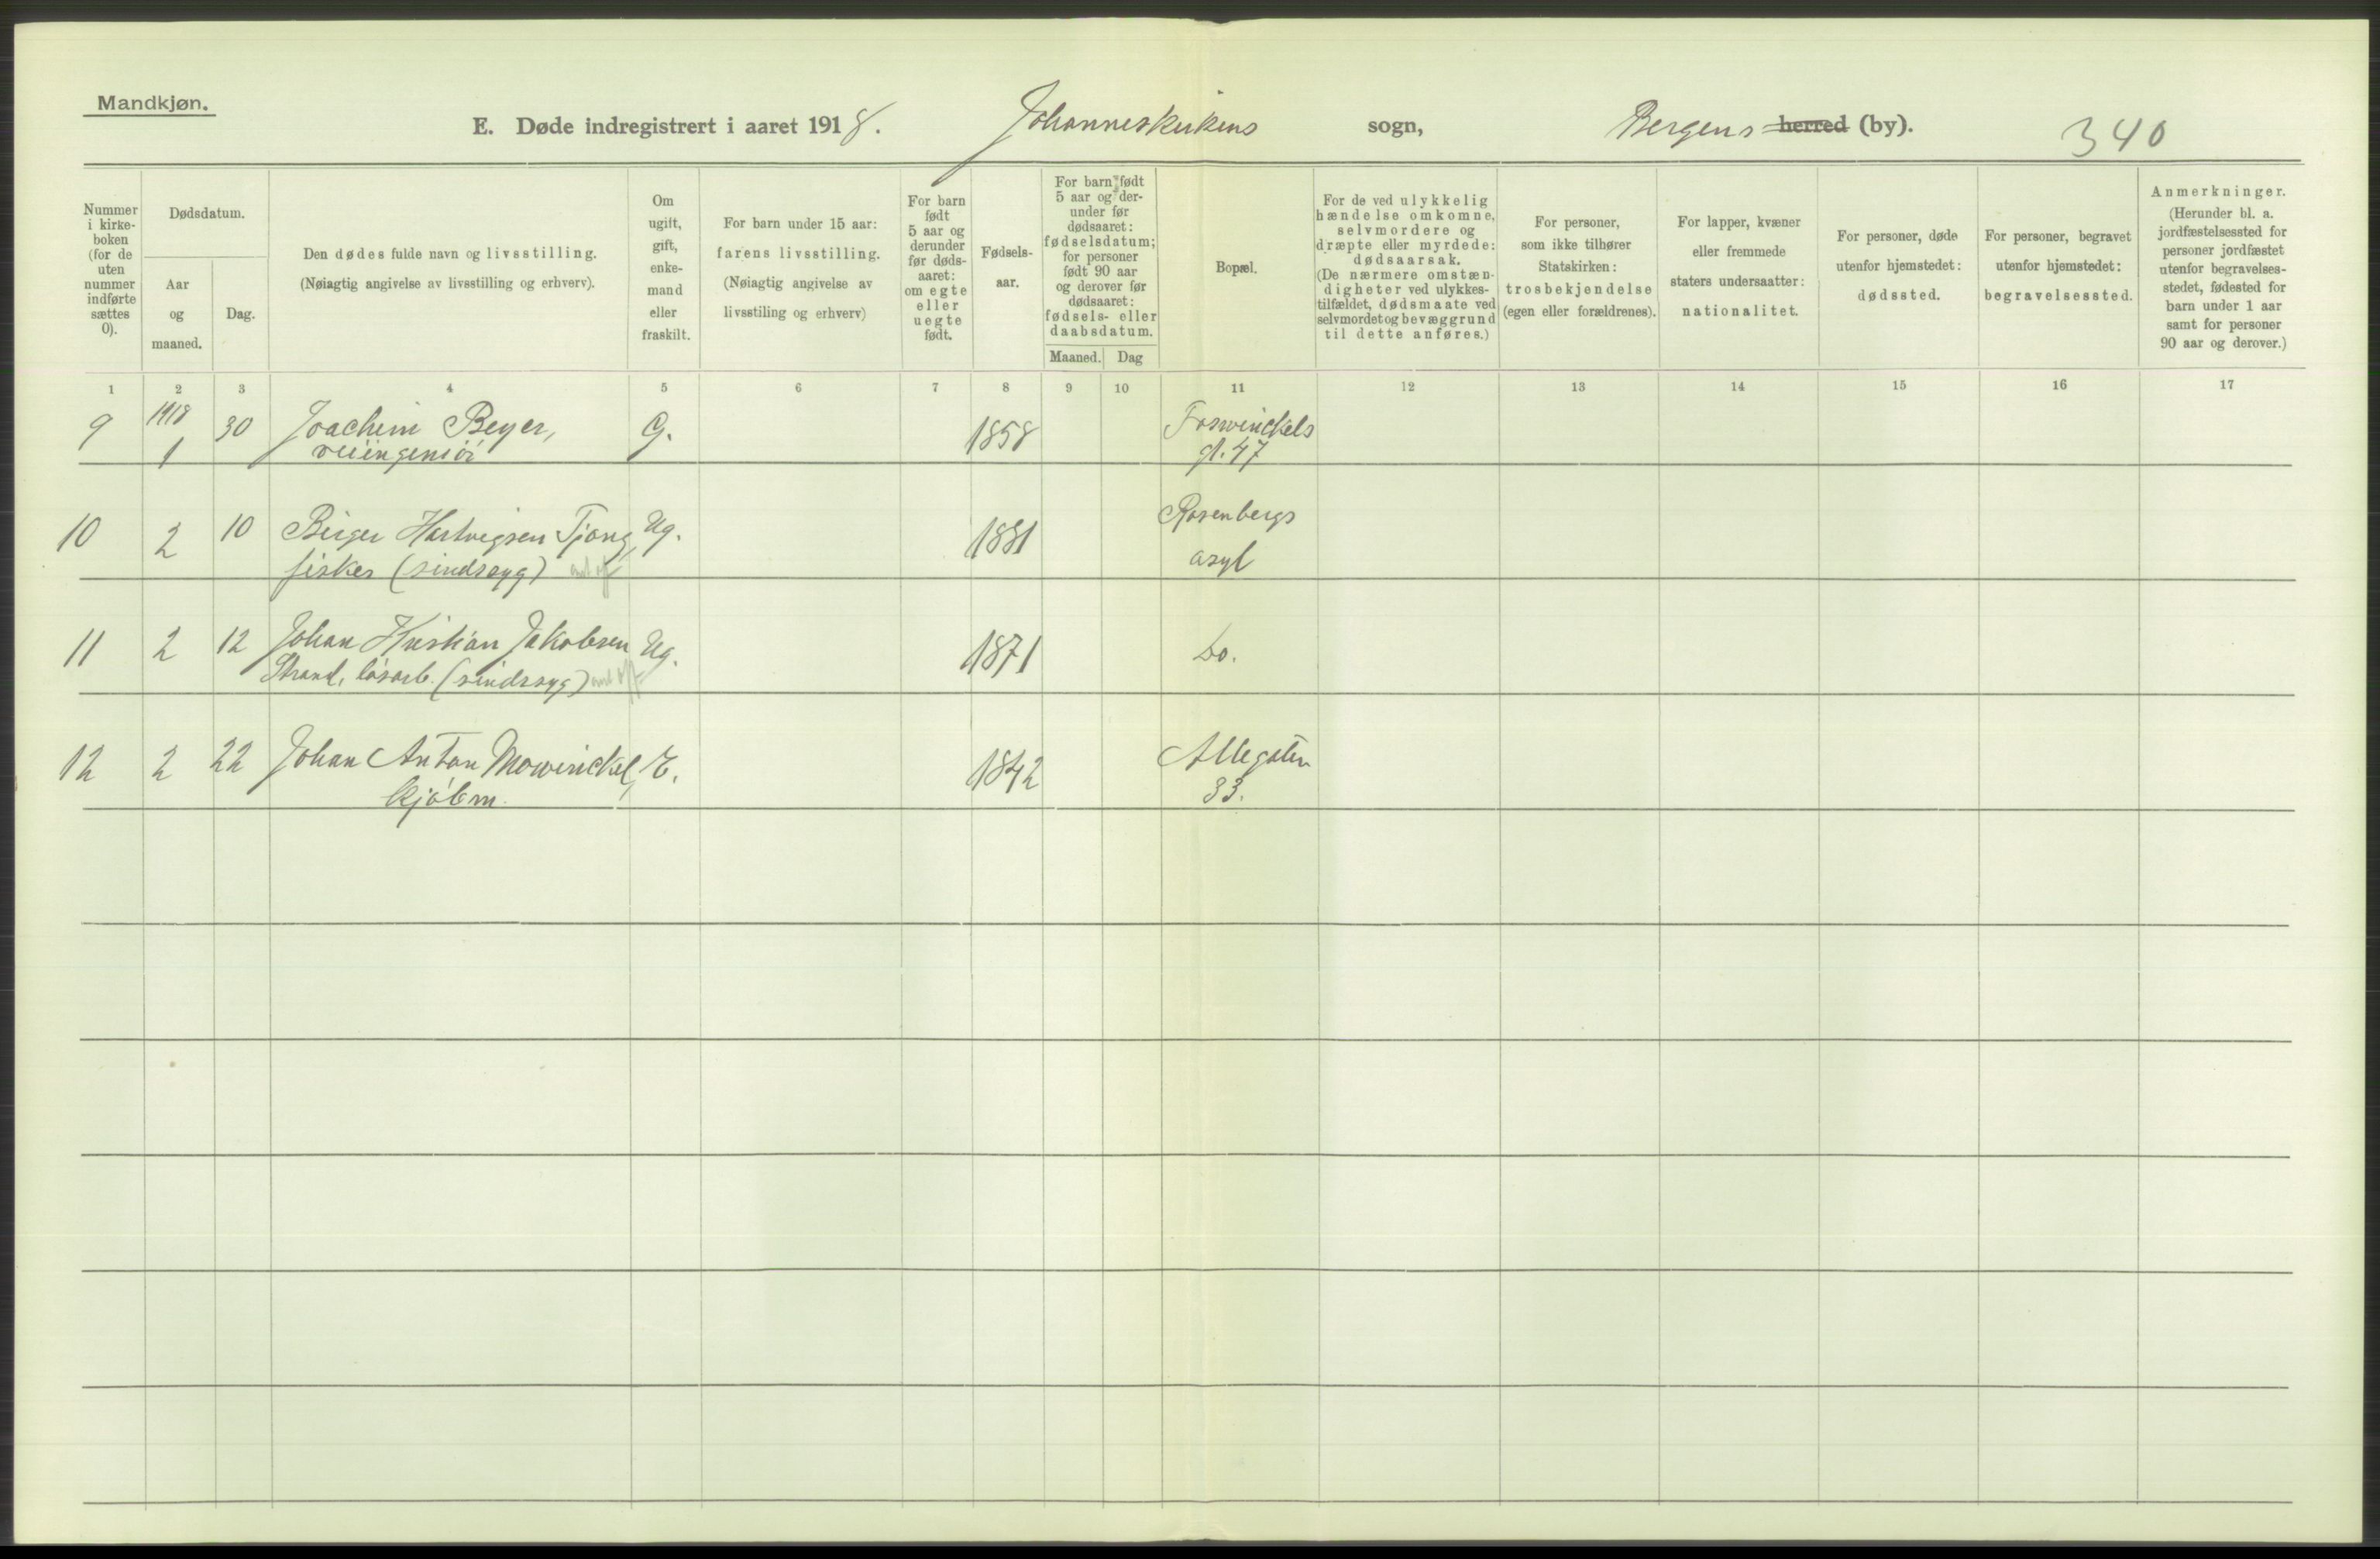 Mandkjøn.
E. Døde indregistrert i aaret 1918. Johanneskirkens sogn, Bergens herred (by). 340
Nummer i kirkeboken (for de uten nummer indførte sættes 0).
Dødsdatum.
Aar og maaned.
Dag.
Den dødes fulde navn og livsstilling.
(Nøiagtig angivelse av livsstilling og erhverv).
Om ugift, gift, enkemand eller fraskilt.
For barn under 15 aar:
farens livsstilling.
(Nøiagtig angivelse av livsstiling og erhverv)
For barn født 5 aar og derunder før dødsaaret: om egte eller uegte født.
Fødselsaar.
For barn født 5 aar og derunder før dødsaaret: fødselsdatum; for personer født 90 aar og derover før dødsaaret: fødsels- eller daabsdatum.
Maaned. Dag
Bopæl.
For de ved ulykkelig hændelse omkomne, selvmordere og dræpte eller myrdede: dødsaarsak.
(De nærmere omstændigheter ved ulykkestilfældet, dødsmaate ved selvmordet og bevæggrund til dette anføres.)
For personer, som ikke tilhører Statskirken: trosbekjendelse (egen eller forældrenes).
For lapper, kvæner eller fremmede staters undersaatter: nationalitet.
For personer, døde utenfor hjemstedet: dødssted.
For personer, begravet utenfor hjemstedet: begravelsessted.
Anmerkninger.
(Herunder bl. a. jordfæstelsessted for personer jordfæstet utenfor begravelsesstedet, fødested for barn under 1 aar samt for personer 90 aar og derover.)
1 2 3 4 5 6 7 8 9 10 11 12 13 14 15 16 17
9 1918 1 30 Joachim Beyer, G. 1858 Foswinckels
veiingeniör gt. 47
10 2 10 Birger Hartvigsen Tjong, Ug. 1881 Rosenbergs
fisker (sindssyg) asyl
11 2 12 Johan Kristian Jakobsen Ug. 1871 Do.
Strand, lösarb. (sindssyg)
12 2 22 Johan Anton Mowinckel, E. 1842 Allegaten
kjöbm. 33.